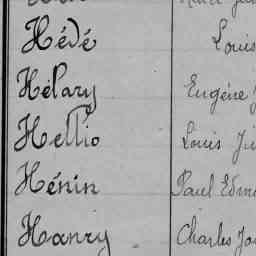 Hévé Louis
Hélary Eugène
Hellio Louis
Hénin Paul
Hanry Charles